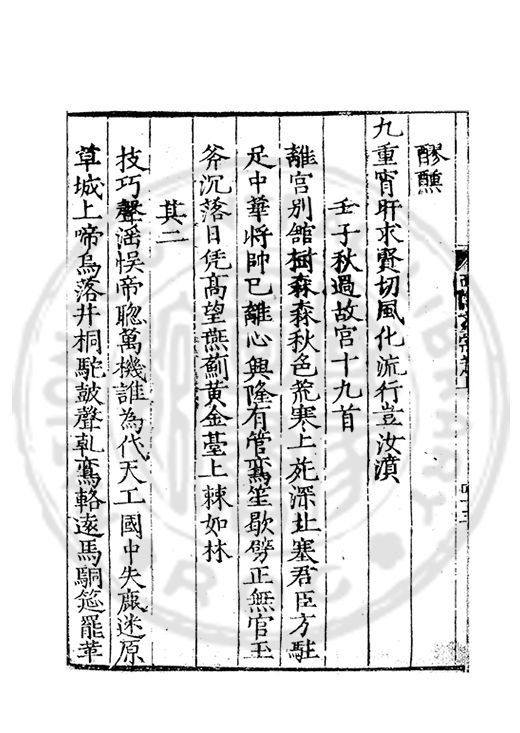 醪醺
九重宵旰求賢切風化流行豈汝濆
壬子秋過故宮十九首
離宮别舘樹森森秋色荒寒上苑深北塞君臣方駐
足中華將帥已離心興隆有管鸞笙歇劈正無官玉
斧沉落日凭高望燕薊黄金臺上棘如林
其二
技巧聲滛悮帝聰萬機誰為代天工國中失鹿迷原
草城上啼烏落井桐駝皷聲乹鸞輅逺馬駧筵罷革